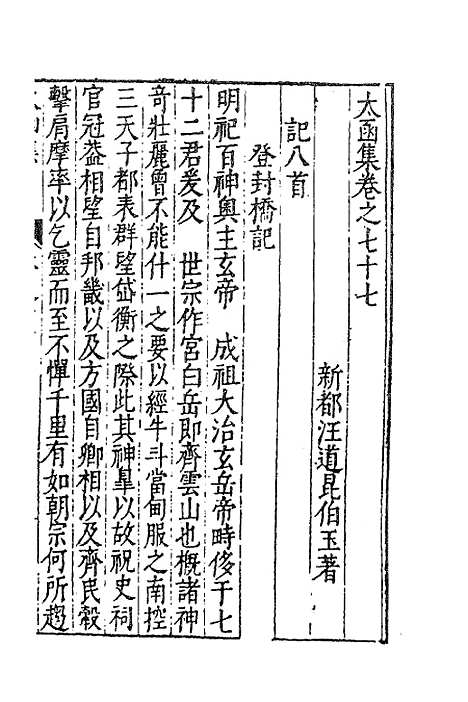 太函集卷之七十七
新都汪道昆伯玉著
記八首
登封橋記
明祀百神輿主玄帝　成祖大治玄岳帝時侈于七
十二君爰及　世宗作宮白岳即齊雲山也概諸神
竒壯麗曾不能什一之要以經牛斗當甸服之南控
三天子都表群望岱衡之際此其神皐以故祝史祠
官冠葢相望自邦畿以及方國自卿相以及齊民轂
擊肩摩率以乞靈而至不憚千里有如朝宗何所趨